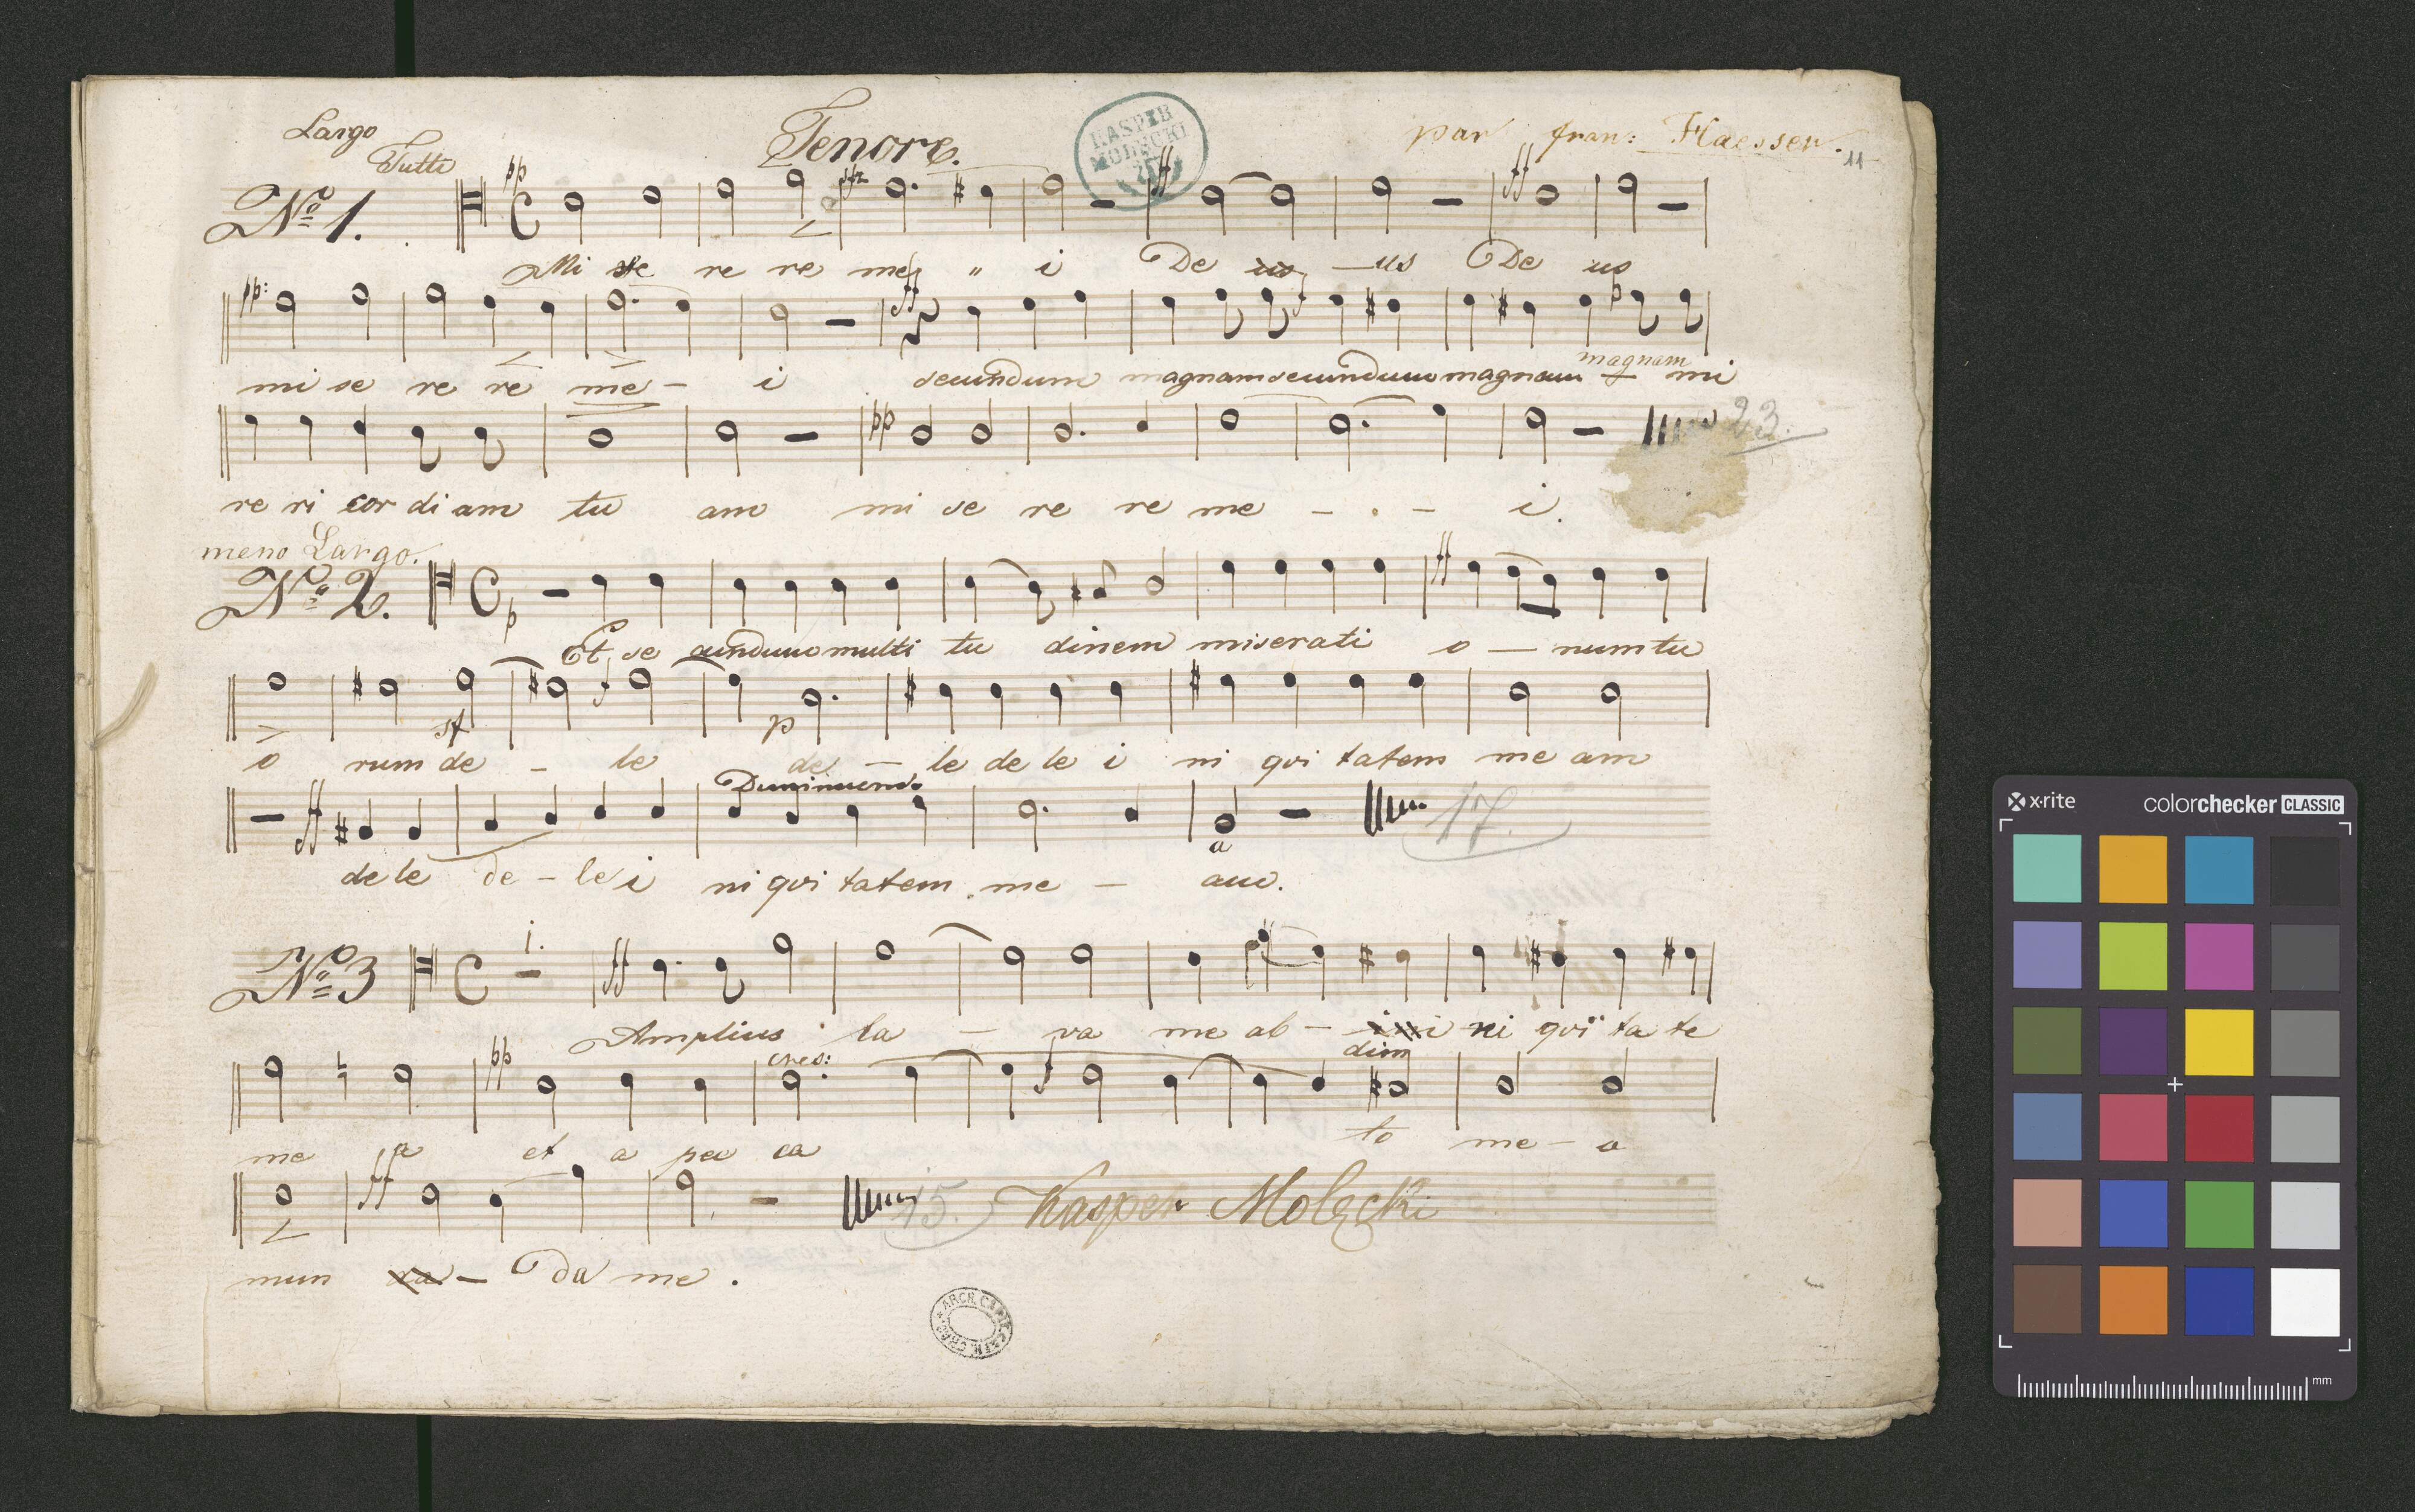 Largo
Tutti
Tenore.
KASPER
MOLĘCKI
par fran: Haesser.
11
No 1.
pp
sfz
ff
ff
Mi se re re me " i De us — us De us
pp:
ff
f
mi se re re me - i secundum magnam secundum magnam magnam — mi
pp
23.
re ri cor di am tu am mi se re re me - . - i.
meno Largo.
No 2.
p
ff
Et se cundum multi tu dinem miserati o — num tu
sf
f
p
o rum de - le de — le de le i ni qui tatem me am
ff
Diminuendo
17.
a
de le de - le i ni qui tatem me - am.
No 3
1.
ff
Amplius la — va me ab - i ni i ni qui ta te
pp
cres:
f
dim
me a et a pec ca to me - o
ff
15.
Kasper Molęcki
mun da - da me .
ARCH. CAPIT. CATH. CRAC.
x·rite
colorchecker CLASSIC
mm